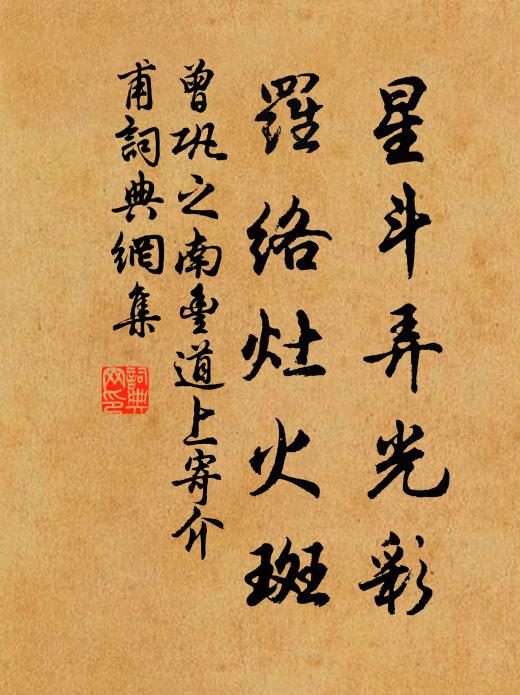 星斗弄光彩
羅絡灶火斑
曾巩之南豐道上寄介
甫詞典網集
詞典网印